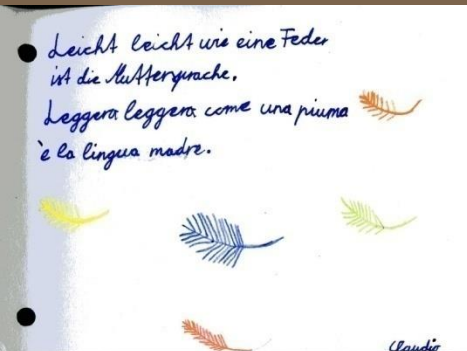 Leicht leicht wie eine Feder
ist die Muttersprache.
Leggera leggera come una piuma
è la lingua madre.
Claudio